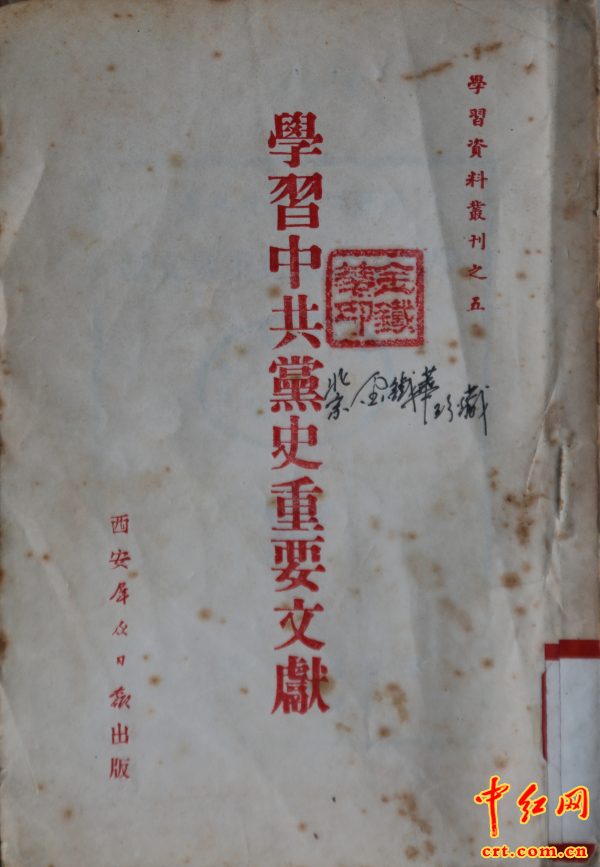 學習資料叢刊之五
學習中共黨史重要文獻
金鐵華印
北京金鐵華珍藏
西安羣众日報出版
中红网
crt.com.cn